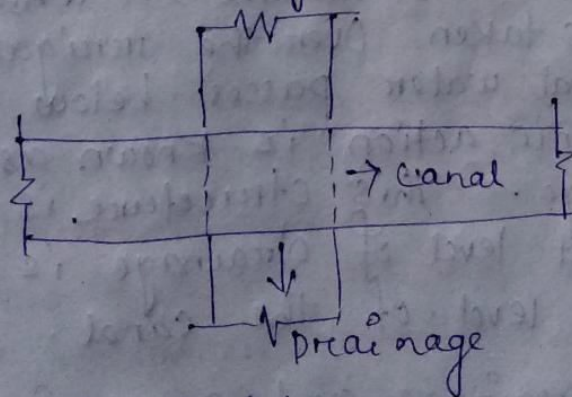 → canal.
Drainage